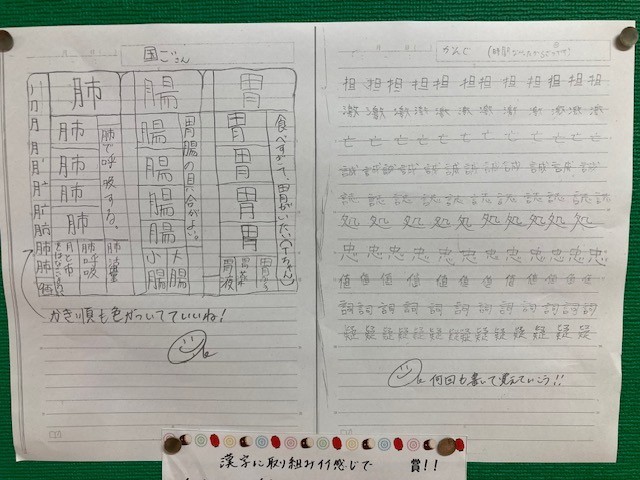 国ごさん
胃
胃
胃
胃
胃
食べすぎて、胃がいたい。
胃液
腸
腸
腸
腸
腸
胃腸の具合がよい。
大腸
小腸
肺
肺
肺
肺
肺
肺で呼吸する。
肺活量
肺呼吸
かき順も色がついてていいね!
かんじ
担 担 担 担 担 担 担 担 担 担
激 激 激 激 激 激 激 激 激 激
亡 亡 亡 亡 亡 亡 亡 亡 亡 亡
誠 誠 誠 誠 誠 誠 誠 誠 誠 誠
認 認 認 認 認 認 認 認 認 認
処 処 処 処 処 処 処 処 処 処
忠 忠 忠 忠 忠 忠 忠 忠 忠 忠
値 値 値 値 値 値 値 値 値 値
詞 詞 詞 詞 詞 詞 詞 詞 詞 詞
疑 疑 疑 疑 疑 疑 疑 疑 疑 疑
何回も書いて覚えていこう!!
漢字に取り組み付感じで 賞!!